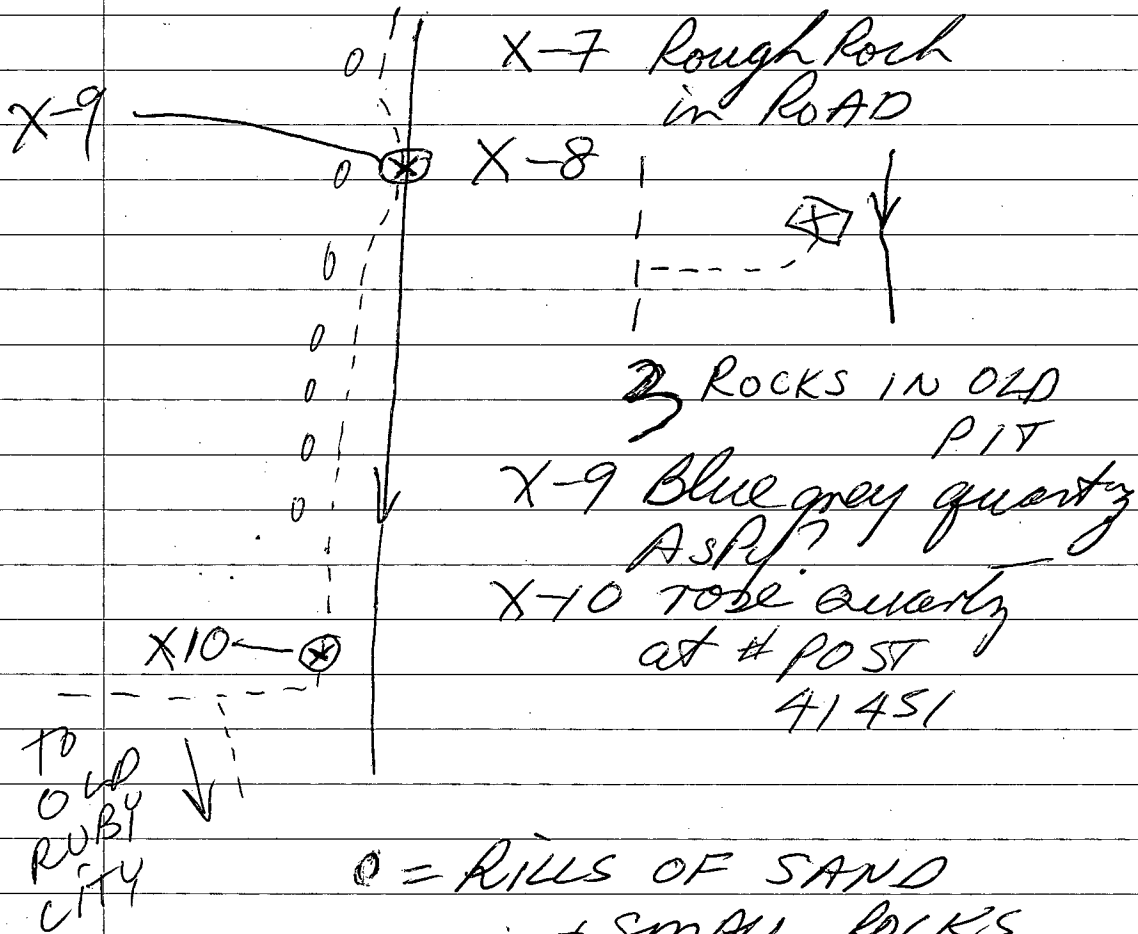 X-7 Rough Rock
in ROAD
X-9
X-8
3 ROCKS IN OLD
PIT
X-9 Blue grey quartz
AsPy?
X-10 rose quartz
at # POST
41451
X10
TO
OLD
RUBY
CITY
0 = RILLS OF SAND
+ SMALL ROCKS